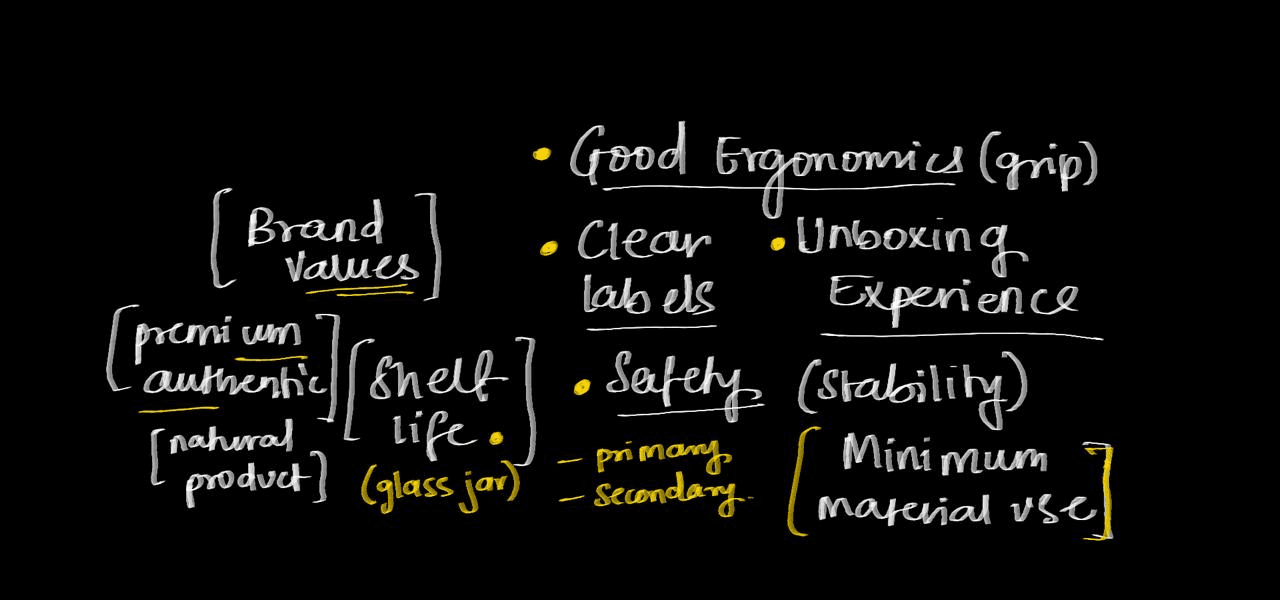 • Good Ergonomics (grip)
[Brand
values]
• Clear
labels
• Unboxing
Experience
[premium
authentic]
[natural
product]
[Shelf
life.]
(glass jar)
• Safety (stability)
- primary
- secondary.
[Minimum
material use]